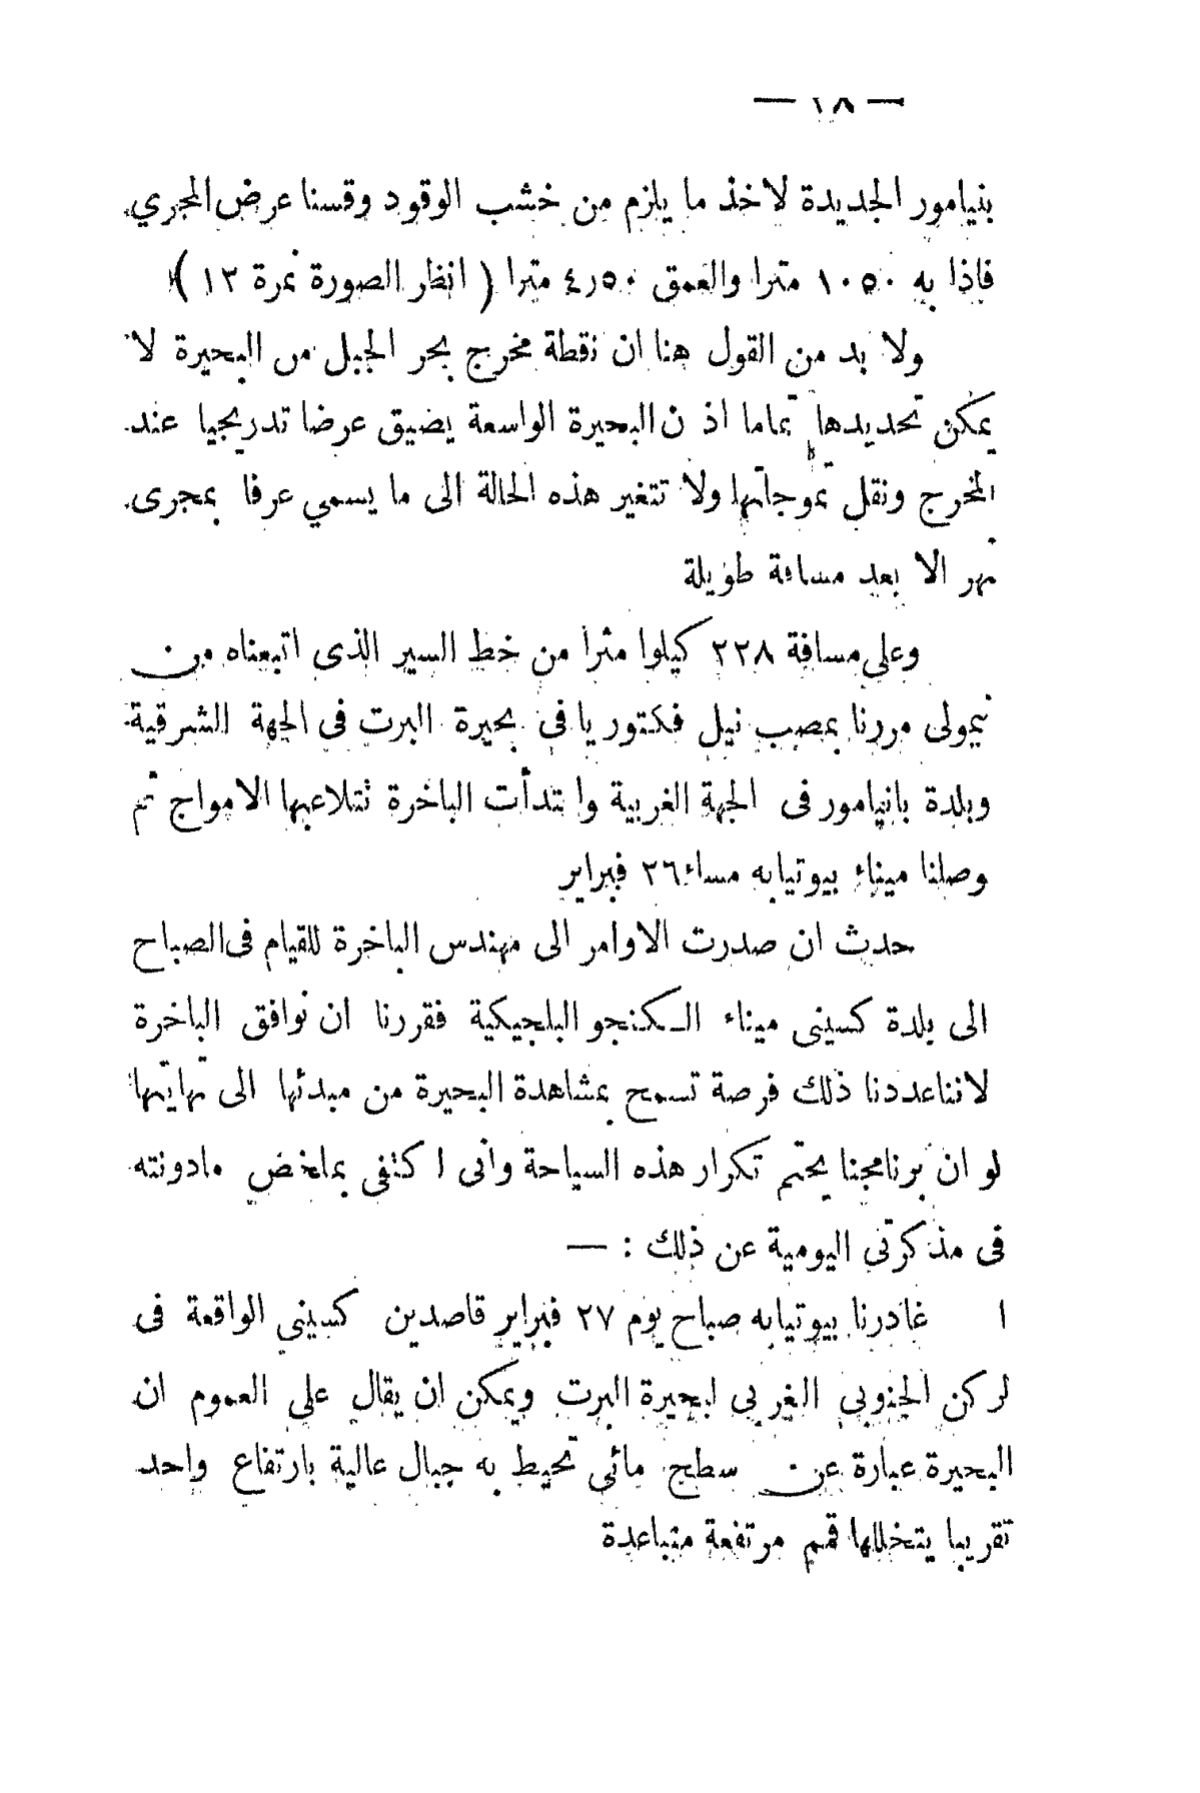 — ١٨ —
بنيامور الجديدة لاخذ ما يلزم من خشب الوقود وقسنا عرض المجري
فاذا به ١٠٥٠ مترا والعمق ٤ر٥٠ مترا ( انظر الصورة نمرة ١٣ )
ولا بد من القول هنا ان نقطة مخرج بحر الجبل من البحيرة لا
يمكن تحديدها تماما اذ ن البحيرة الواسعة يضيق عرضا تدريجيا عند
المخرج ونقل تموجاتها ولا تتغير هذه الحالة الى ما يسمي عرفا بمجرى
نهر الا بعد مسافة طويلة
وعلي مسافة ٢٢٨ كيلوا مثرا من خط السير الذى اتبعناه من
نيمولى مررنا بمصب نيل فكتوريا فى بحيرة البرت فى الجهة الشرقية
وبلدة بانيامور فى الجهة الغربية وابتدأت الباخرة تتلاعبها الامواج ثم
وصلنا ميناء بيوتيابه مساء ٢٦ فبراير
حدث ان صدرت الاوامر الى مهندس الباخرة للقيام فى الصباح
الى بلدة كسينى ميناء الكنجو البلجيكية فقررنا ان نوافق الباخرة
لاننا عددنا ذلك فرصة تسمح بمشاهدة البحيرة من مبدئها الى نهايتها
لو ان برنامجنا يحتم تكرار هذه السياحة وانى اكتفى بملخض مادونته
فى مذكرتي اليومية عن ذلك : —
١ غادرنا بيوتيابه صباح يوم ٢٧ فبراير قاصدين كسيني الواقعة فى
لركن الجنوبي الغربى لبحيرة البرت ويمكن ان يقال علي العموم ان
البحيرة عبارة عن سطح مائى تحيط به جبال عالية بارتفاع واحد
تقريبا يتخللها قمم مرتفعة متباعدة